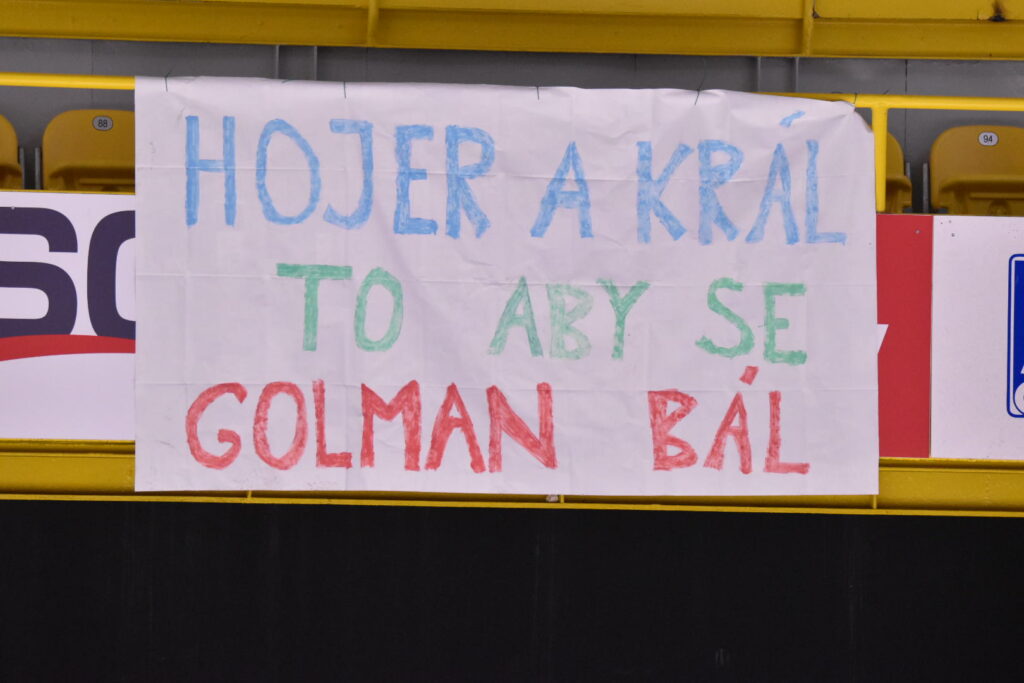 88
94
HOJER A KRÁL
TO ABY SE
GOLMAN BÁL